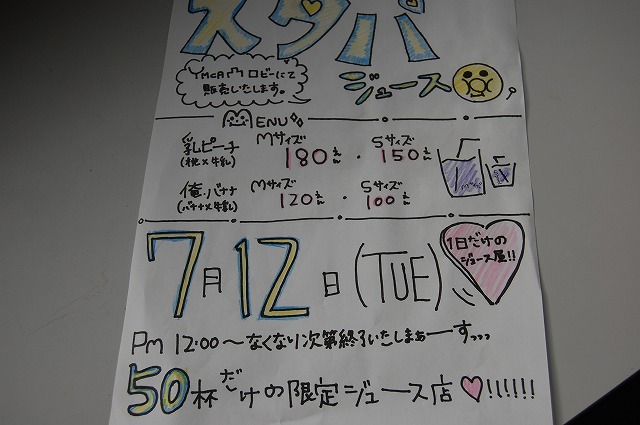 スタバ
YMCA内ロビーにて
販売いたします。
ジュース
MENU
Mサイズ Sサイズ
乳ピーチ 180えん ・ 150えん
(桃×牛乳)
Mサイズ Sサイズ
俺・バナナ 120えん ・ 100えん
(バナナ×牛乳)
7月12日(TUE)
1日だけの
ジュース屋!!
Pm 12:00〜なくなり次第終了いたしまぁーすっっっ
50杯だけの限定ジュース店♡!!!!!!